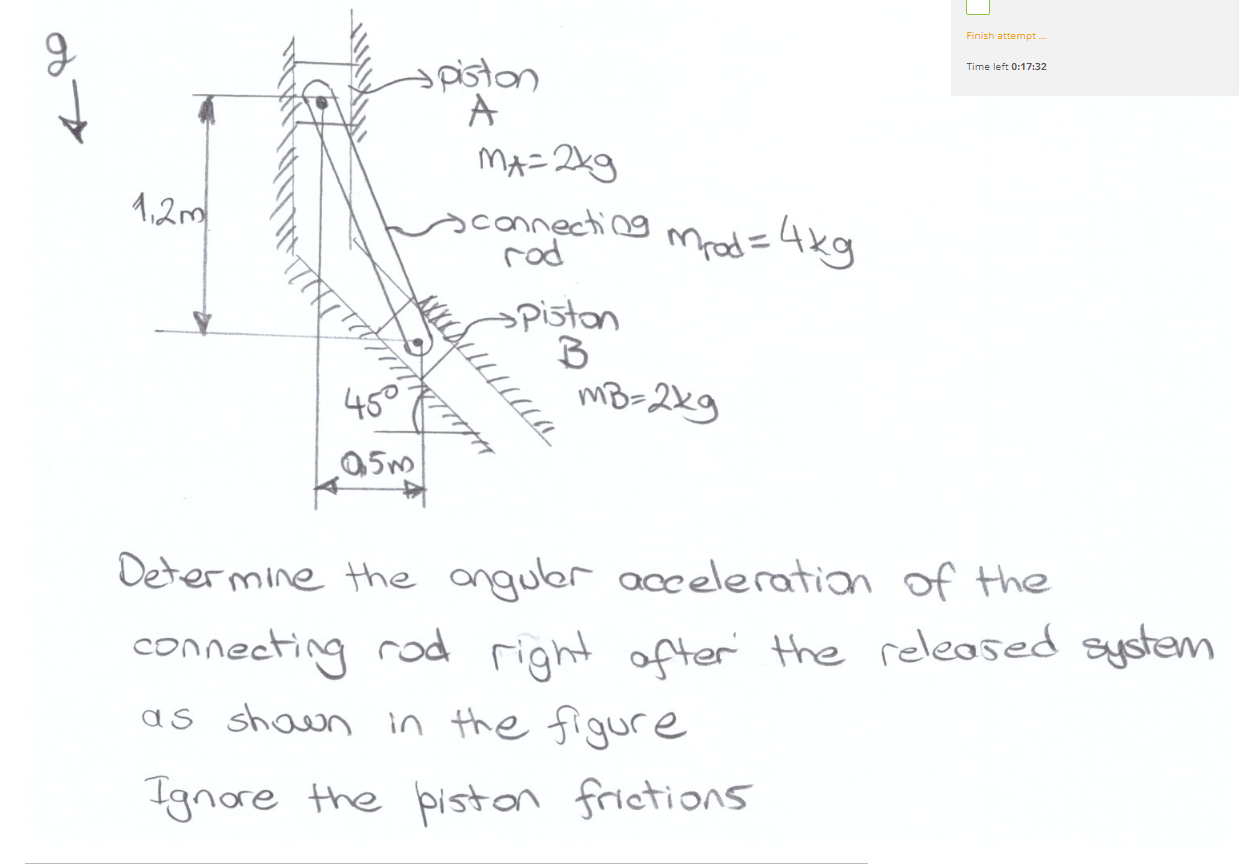 Finish attempt ...
Time left 0:17:32
g
piston
A
mA=2kg
1,2m
connecting
rod
mrod=4kg
piston
B
mB=2kg
45°
0,5m
Determine the angular acceleration of the
connecting rod right after the released system
as shown in the figure
Ignore the piston frictions